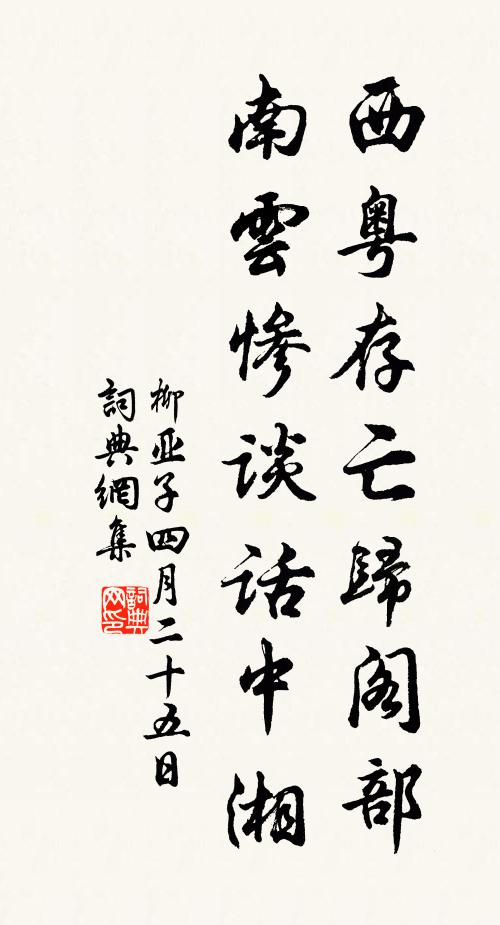 西粤存亡歸阁部
南雲惨谈话中湘
柳亚子四月二十五日
詞典網集
詞典网印